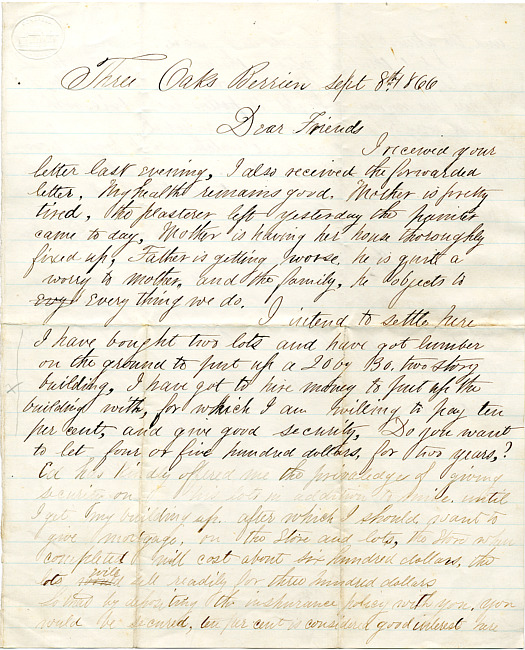 Three Oaks Berrien Sept 8th 1866
Dear Friends
I received your
letter last evening, I also received the forwarded
letter. My health remains good. Mother is pretty
tired, the plasterer left yesterday the painter
came to day, Mother is having her house thoroughly
fixed up. Father is getting worse, he is quite a
worry to mother, and the family, he objects to
Every thing we do.
I intend to settle here
I have bought two lots and have got lumber
on the ground to put up a 20 by 30, two story
building, I have got to hire money to put up the
building with, for which I am willing to pay ten
per cent, and give good security, Do you want
to let four or five hundred dollars, for two years,?
Ed has kindly offered me the priviledge of giving
security on his lots in addition to mine, until
I get my building up. after which I should want to
give mortgage, on the Store and lots, the Store when
completed will cost about six hundred dollars, the
lots will sell readily for three hundred dollars
So that by depositing the insurance policy with you, you
would be secured, ten per cent is considered good interest here